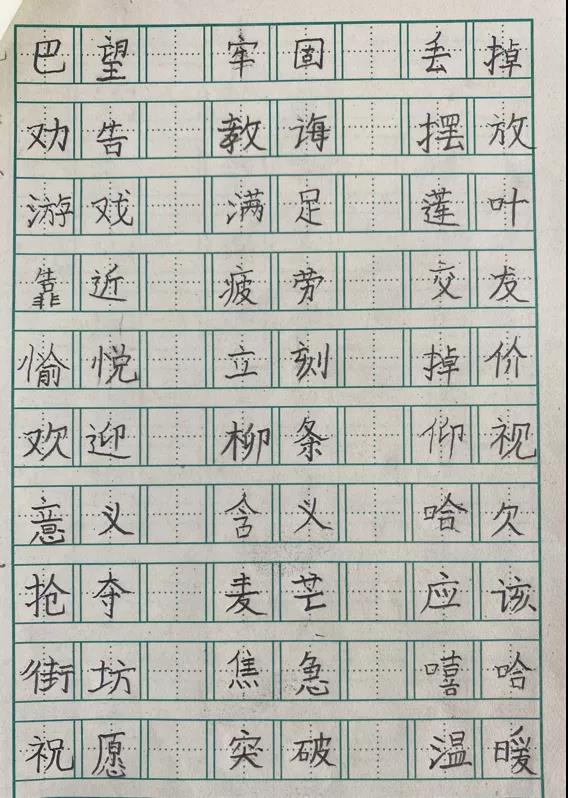 巴望 牢固 丢掉
劝告 教诲 摆放
游戏 满足 莲叶
靠近 疲劳 交友
愉悦 立刻 掉价
欢迎 柳条 仰视
意义 含义 哈欠
抢夺 麦芒 应该
街坊 焦急 嘻哈
祝愿 突破 温暖